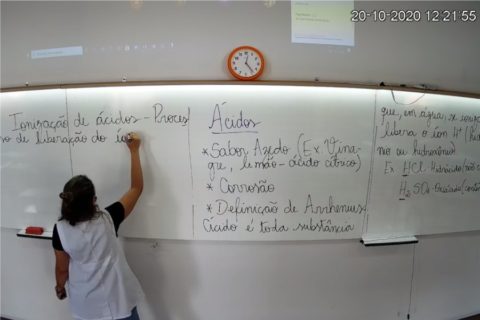 20-10-2020 12:21:55
Ionização de ácidos - Proces
so de liberação do ío
Ácidos
* Sabor Azedo (Ex: Vina-
gre, limão - ácido cítrico)
* Corrosão
* Definição de Arrhenius
Ácido é toda substância
que, em água, se
libera o íon H⁺
no ou hidroxônio)
Ex: HCl
H₂SO₄